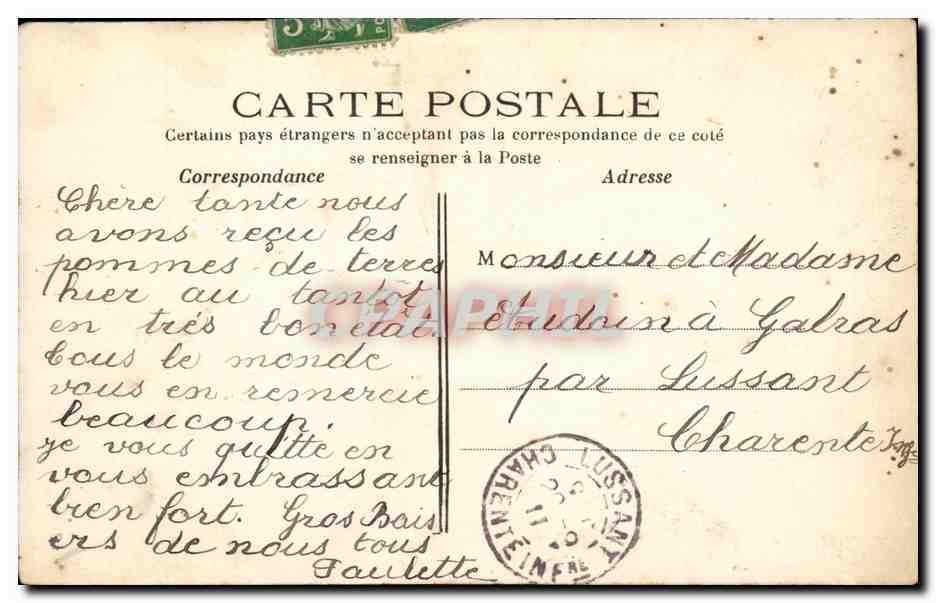 5
CARTE POSTALE
Certains pays étrangers n'acceptant pas la correspondance de ce coté
se renseigner à la Poste
Correspondance
Chère tante nous
avons reçu les
pommes de terres
hier au tantôt
en très bon état
tous le monde
vous en remercie
beaucoup.
je vous quitte en
vous embrassant
bien fort. Gros Bais
ers de nous tous
Paulette
Adresse
Monsieur et Madame
à Galras
par Lussant
Charente Infre
LUSSANT
CHARENTE INFRE
11